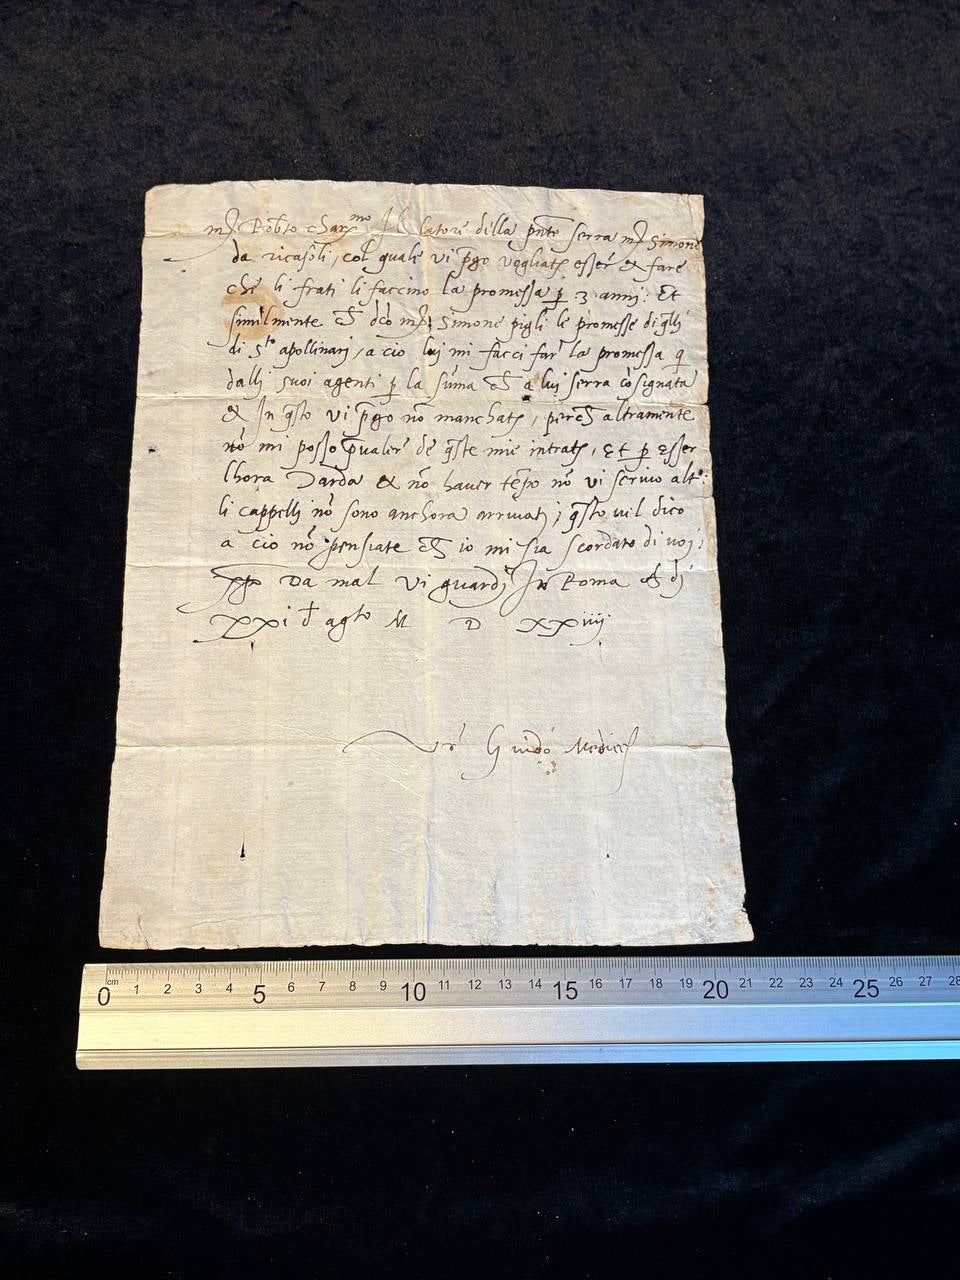 mſ Robto charmo Il latore della pnte serra mſ Simone
da ricasoli, col quale vi pgo vogliate esser & fare
che li frati li faccino la promessa p 3 anni: Et
similmente che dcō mſ Simone pigli le promesse di qlli
di Sto apollinarj, a cio lui mi facci far la promessa q
dalli suoi agenti p la sūma che a lui serra cōsignata
& In qsto vi pgo nō manchate, perche altramente
nō mi posso pualer de qste mie intrate, Et p esser
lhora tarda & nō haver tēpo nō vi scrivo altº:
li cappelli nō sono anchora arrivati; qsto vel dico
a cio nō pensiate che io mi sia scordato di voj;
xpo Da mal vi guardi In Roma A di
xxi d agto M D xxiiij
Vr Guido Medices
0 cm 1 2 3 4 5 6 7 8 9 10 11 12 13 14 15 16 17 18 19 20 21 22 23 24 25 26 27 28